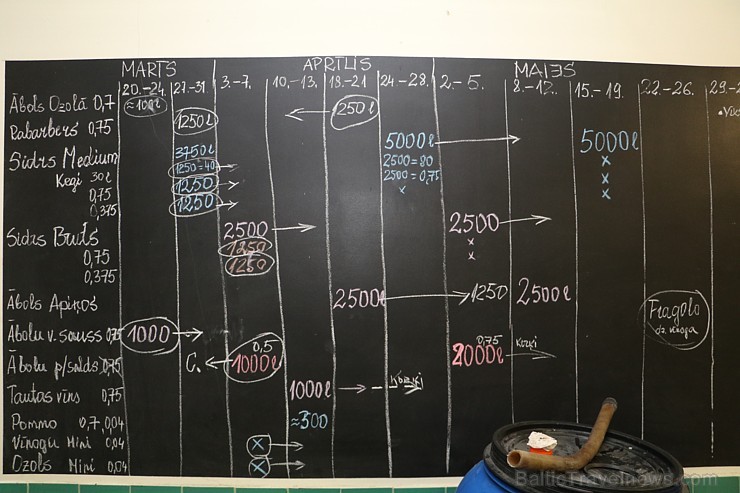 MARTS APRĪLIS MAIJS
20.-24. 27.-31. 3.-7. 10.-13. 18.-21. 24.-28. 2.-5. 8.-12. 15.-19. 22.-26. 29.-2
Ābols Ozolā 0,7 ≈100l 250l
Rabarbers 0,75 1250l
Sidrs Medium 3750l 5000l 5000l
Ķegi 30l 1250=40 2500=80 x
0,75 1250 2500=0,75 x
0,375 1250 x x
Sidrs Bruts 2500 2500
0,75 1250 x
0,375 1250 x
Ābols Apiņos 2500l 1250 2500l
Fragola
Ābolu v. sauss 0,75 1000
Ābolu p/salds 0,75 C. 0,5 1000l 0,75 2000l
Tautas vīns 0,75 1000l
Pommo 0,7 0,04 ≈300
Vīnogu Mini 0,04 x
Ozols Mini 0,04 x
BalticTravelnews.com